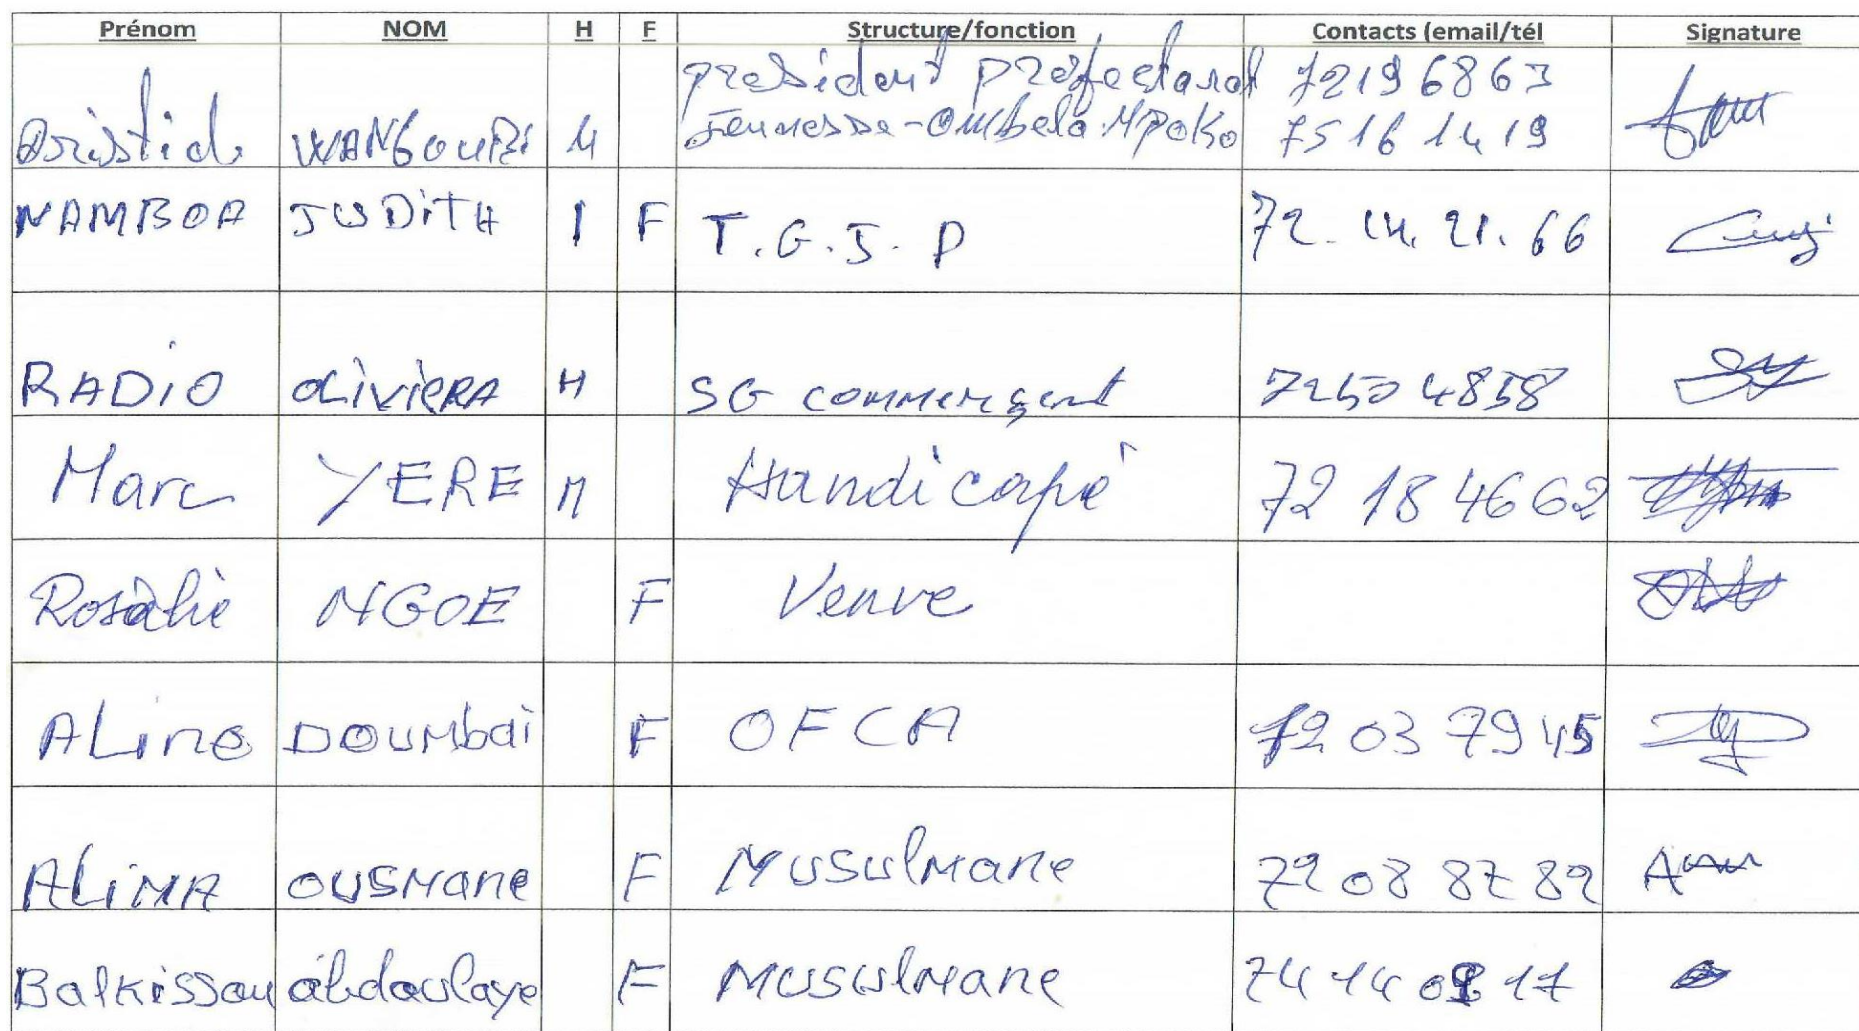 Prénom NOM H F Structure/fonction Contacts (email/tél Signature
président préfectoral 72196863
Aristid WANGOUBI M Jeunesse-Ombela-Mpoko 75 16 14 19
NAMBOA JUDITH I F T.G.J.P 72.14.21.66
RADIO oliviera H SG commerçant 72504858
Marc YERE M Handicapé 72 18 46 62
Rosalie NGOE F Veuve
ALine DOUMbai F OFCA 72 03 79 45
ALIMA OUSMane F MUSULMane 72 08 87 82
Balkissou abdoulaye F MUSULMane 74 14 08 17